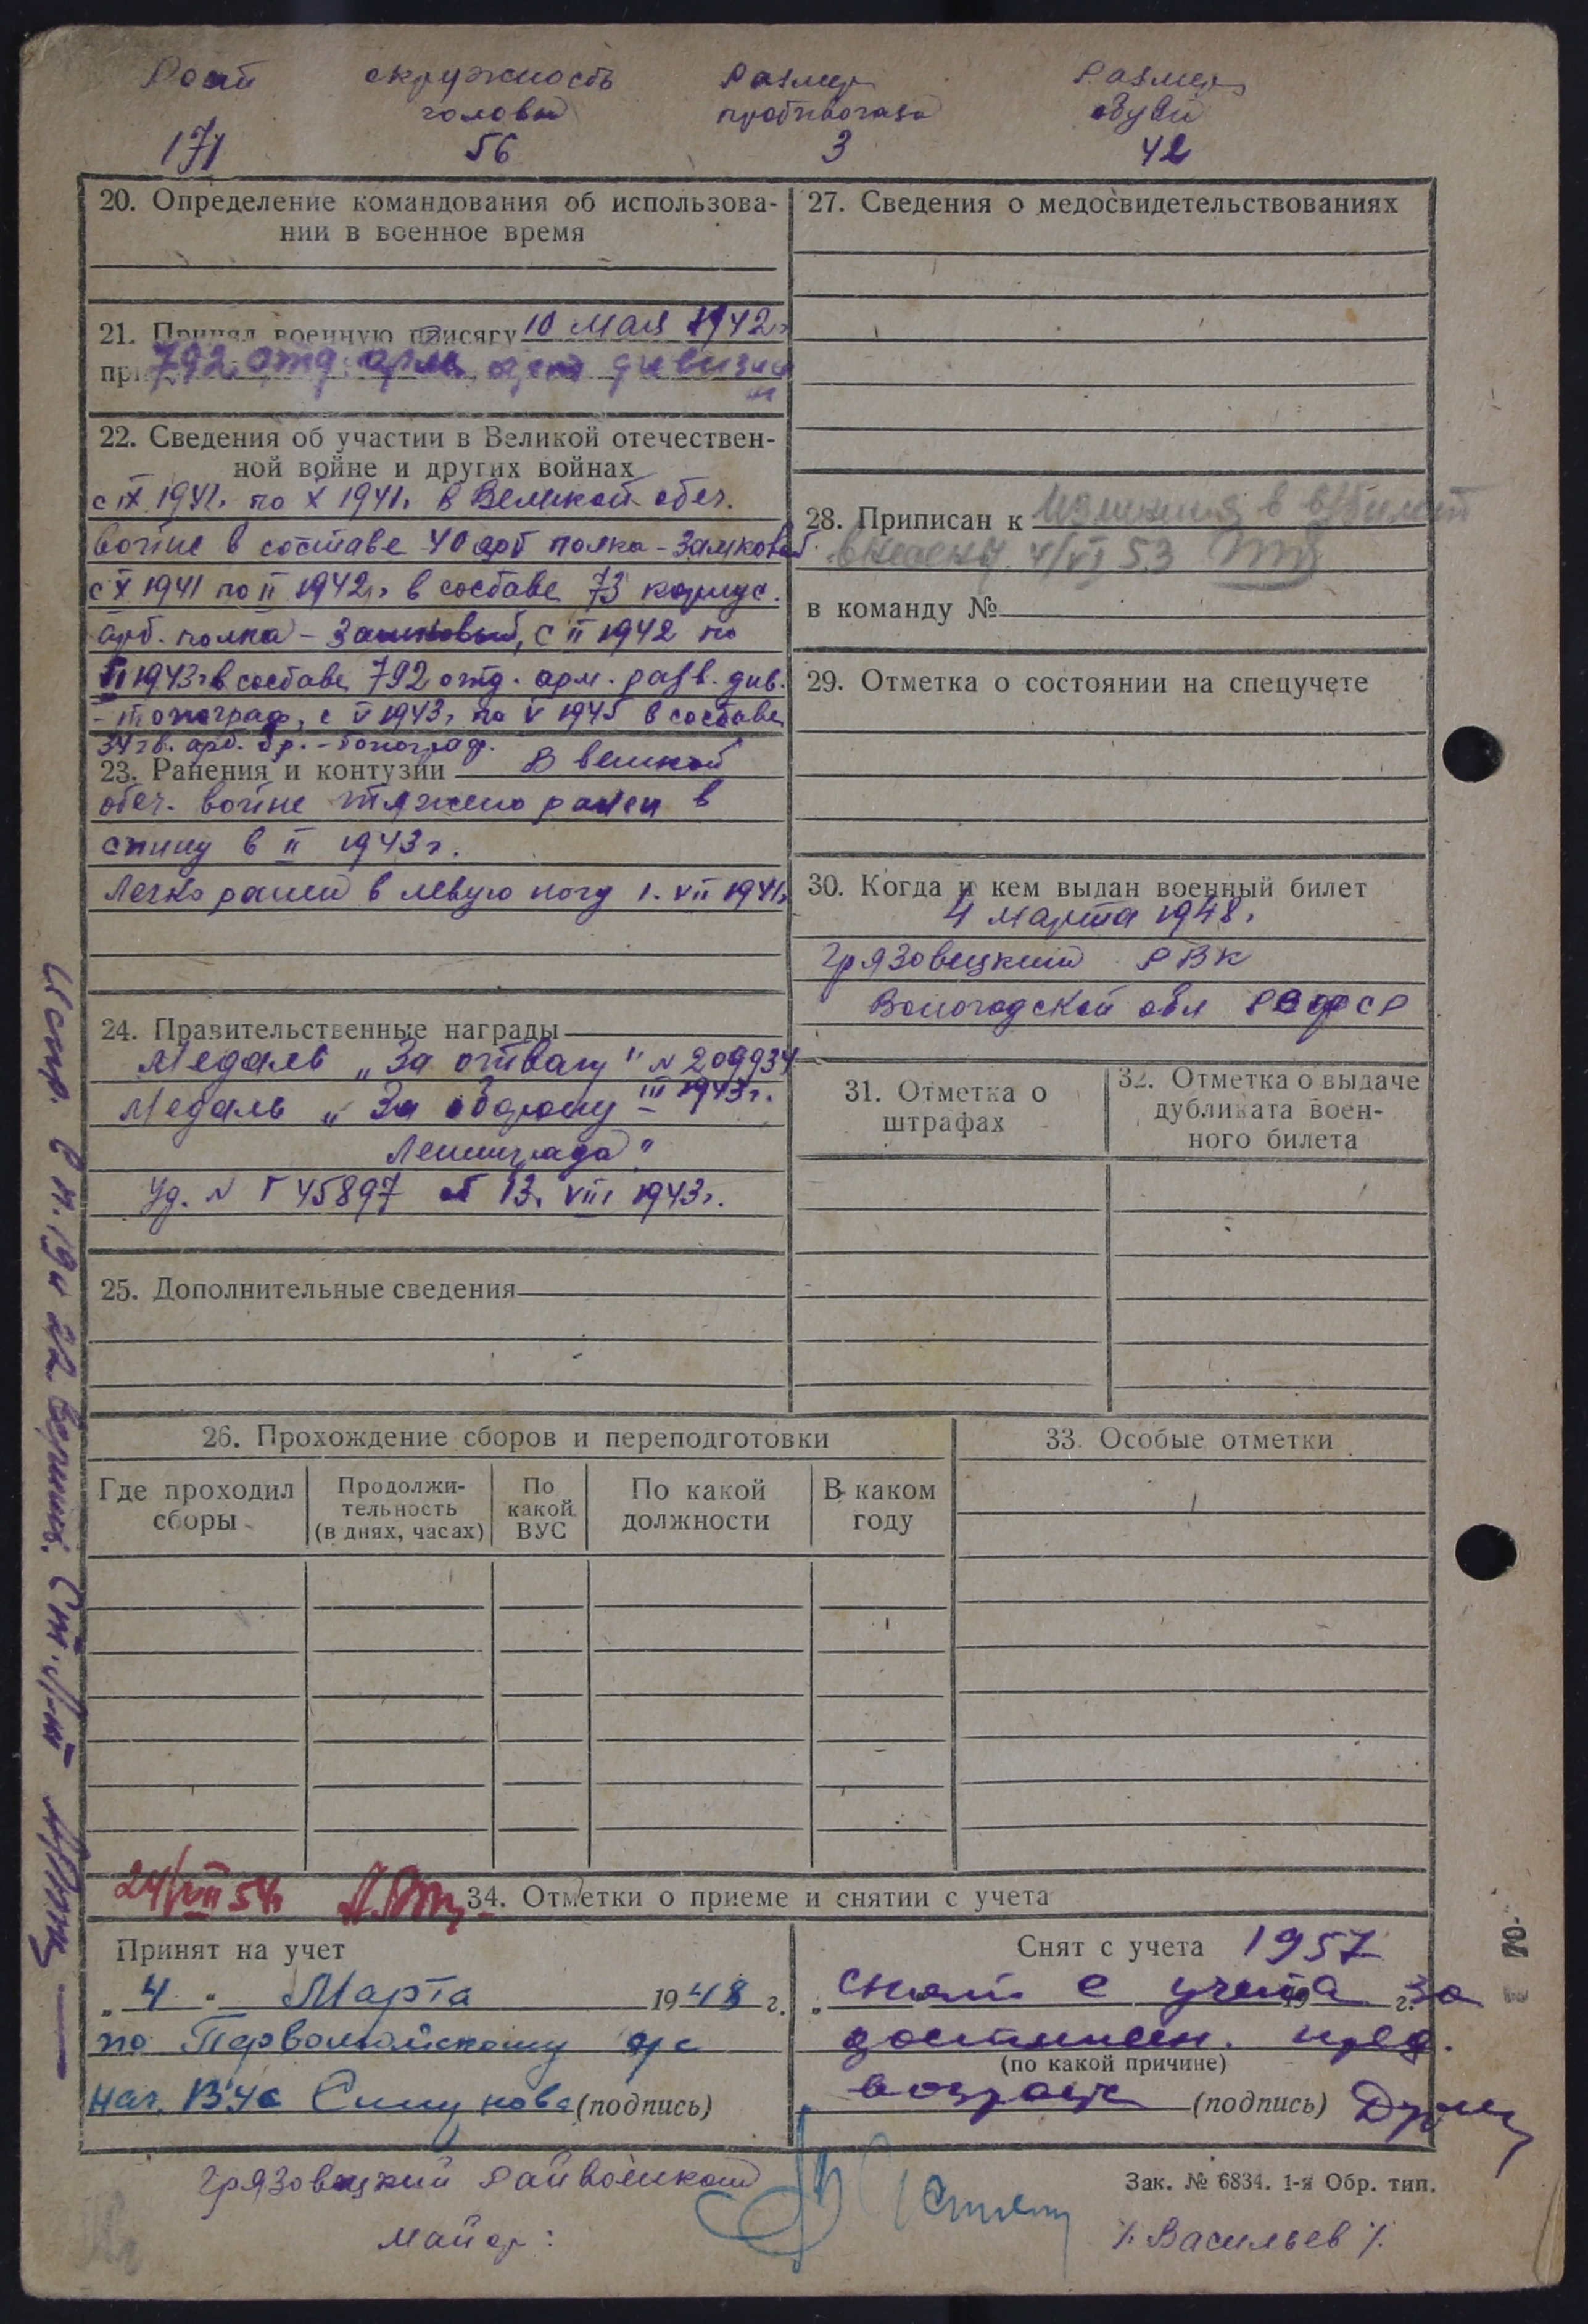 Рост окружность Размер Размер
головы противогаза обуви
171 56 3 42
20. Определение командования об использова-
нии в военное время
21. Принял военную присягу 10 мая 1942г
при 792 отд. арм. арт дивизии
22. Сведения об участии в Великой отечествен-
ной войне и других войнах
с IX 1941г. по X 1941г. в Великой отеч.
войне в составе 40 арт полка - Замковый.
с X 1941 по II 1942г. в составе 73 корпус.
арт. полка - Замковый, с II 1942 по
II 1943г в составе 792 отд. арм. разв. див.
- топограф, с V 1943г по V 1945 в составе
34 гв. арт. бр. - топограф.
23. Ранения и контузии В великой
отеч. войне тяжело ранен в
спину в II 1943г.
Легко ранен в левую ногу 1. VII 1941г
24. Правительственные награды
Медаль „За отвагу" N 209934
III 1943г.
Медаль „За оборону
Ленинграда"
Уд. N Г 45897 от 13. VIII 1943г.
25. Дополнительные сведения
26. Прохождение сборов и переподготовки
Где проходил сборы
Продолжи-
тельность
(в днях, часах)
По
какой
ВУС
По какой
должности
В каком
году
27. Сведения о медосвидетельствованиях
28. Приписан к Изменения в в/билет
внесены 4/VI 53
в команду №
29. Отметка о состоянии на спецучете
30. Когда и кем выдан военный билет
4 марта 1948г.
Грязовецкий РВК
Вологодской обл РСФСР
31. Отметка о
штрафах
32. Отметка о выдаче
дубликата воен-
ного билета
33. Особые отметки
24/VIII 54г
34. Отметки о приеме и снятии с учета
Принят на учет
„ 4 " Марта 1948 г.
по Первомайскому с/с
нач. ВУС (подпись)
Снят с учета 1957
„ снят с учета 19 г. за
достижен. пред.
(по какой причине)
возраста (подпись)
Грязовецкий Райвоенком
майор:
/. Васильев /.
Зак. № 6834. 1-я Обр. тип.
Испр. в п. 19 и 22 верить. Ст. л-т
70-